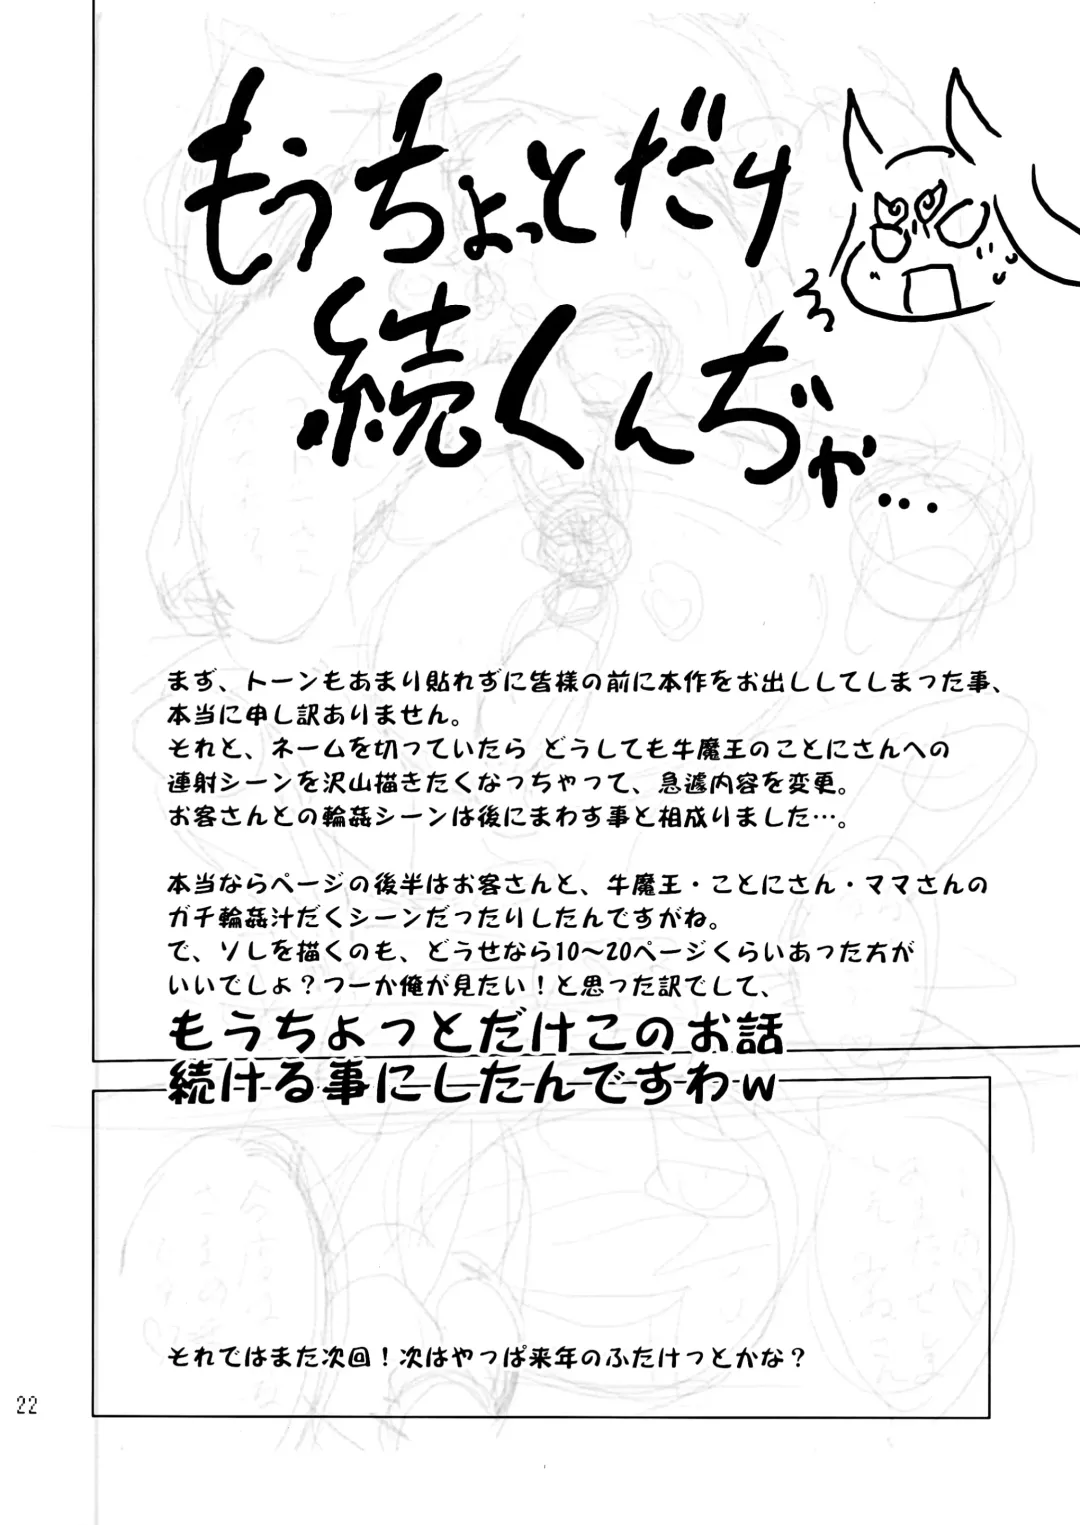 もうちょっとだけ
続くんぢゃ…
まず、トーンもあまり貼れずに皆様の前に本作をお出ししてしまった事、
本当に申し訳ありません。
それと、ネームを切っていたら どうしても牛魔王のことにさんへの
連射シーンを沢山描きたくなっちゃって、急遽内容を変更。
お客さんとの輪姦シーンは後にまわす事と相成りました…。
本当ならページの後半はお客さんと、牛魔王・ことにさん・ママさんの
ガチ輪姦汁だくシーンだったりしたんですがね。
で、ソレを描くのも、どうせなら10～20ページくらいあった方が
いいでしょ？つーか俺が見たい！と思った訳でして、
もうちょっとだけこのお話
続ける事にしたんですわｗ
それではまた次回！次はやっぱ来年のふたけっとかな？
22